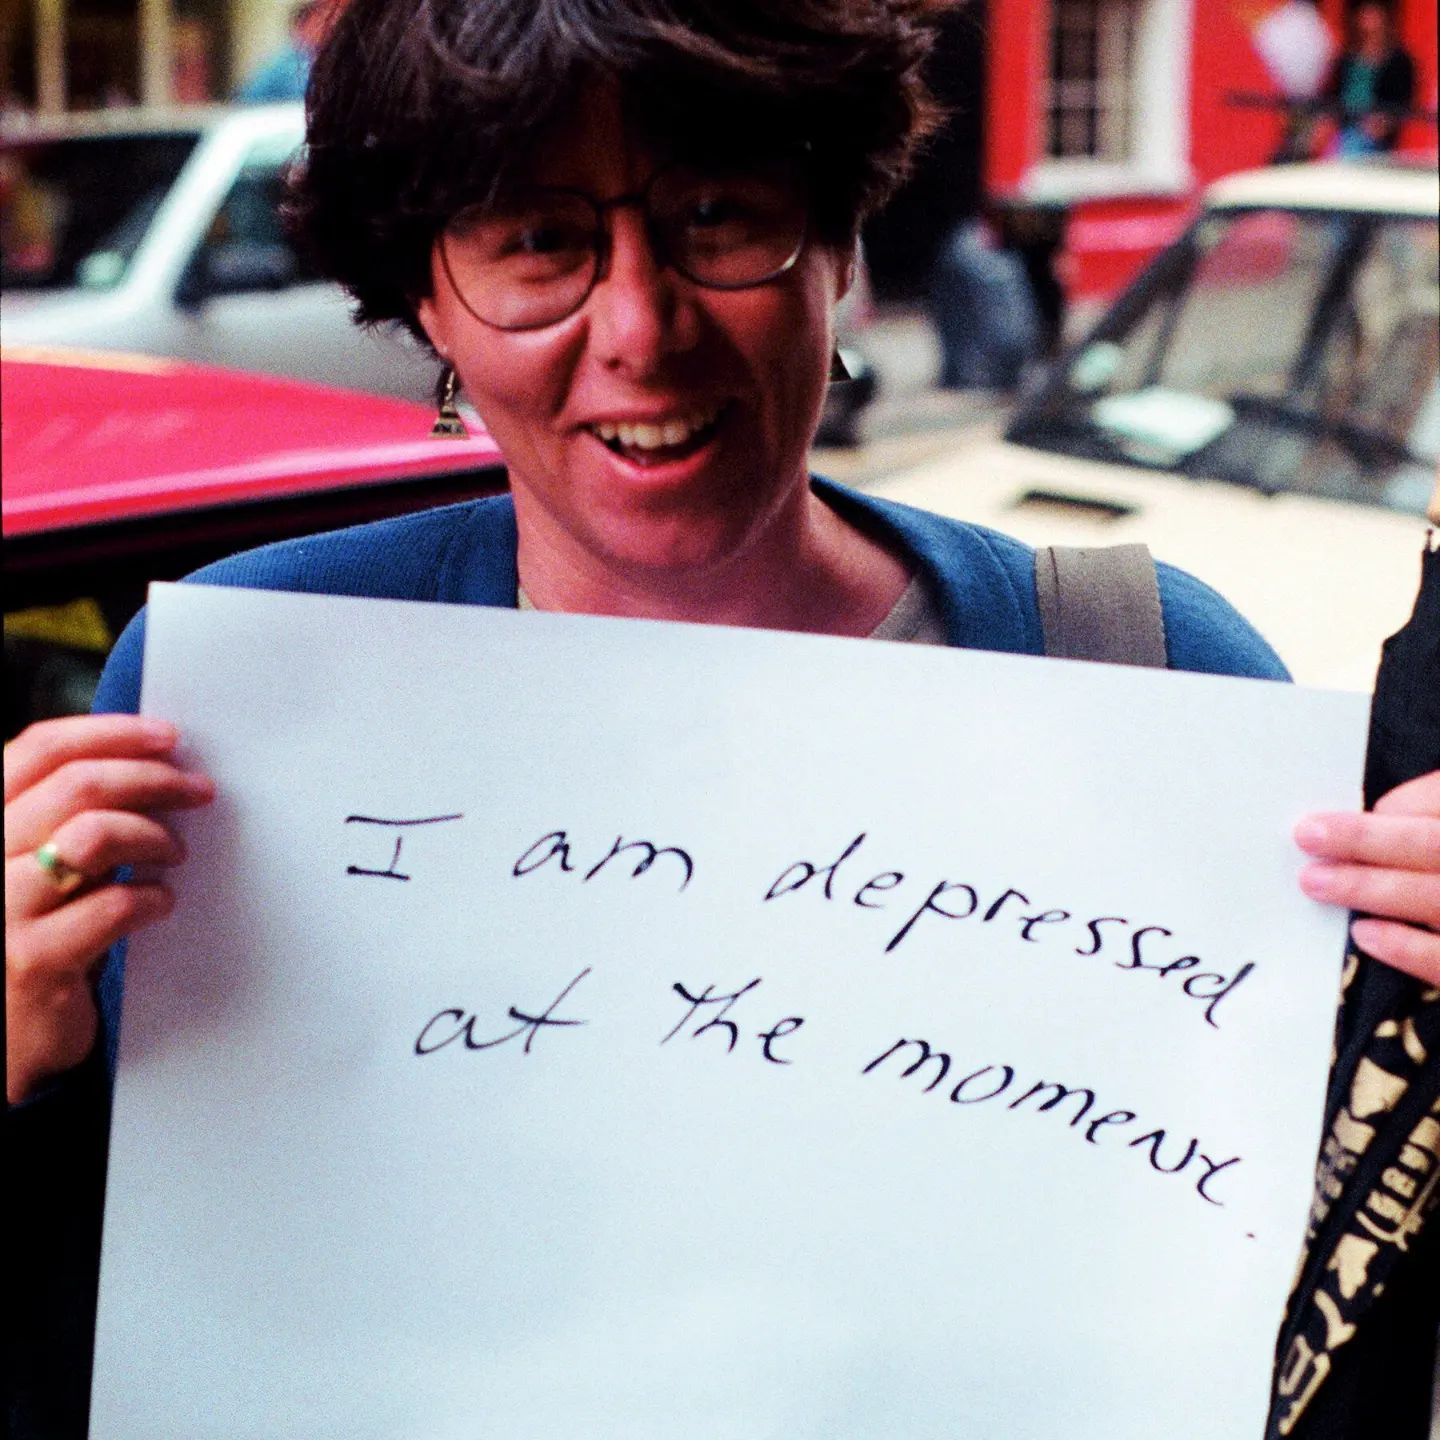 I am depressed
at the moment.